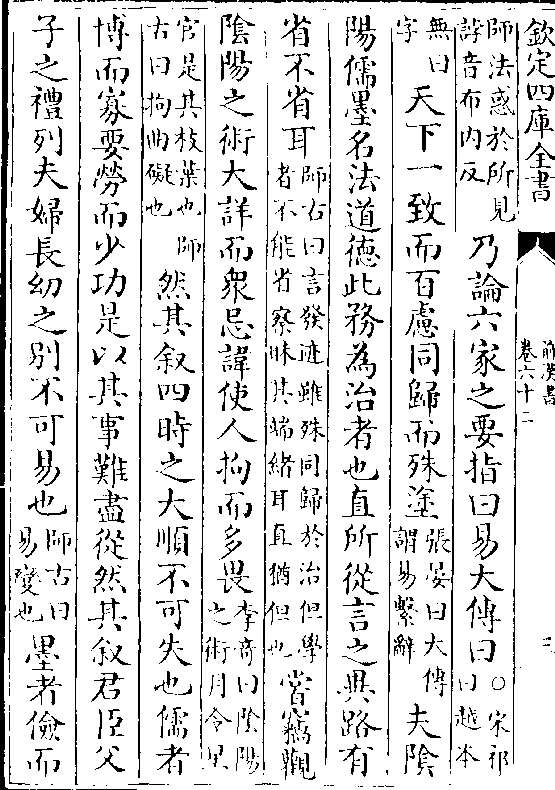 欽定四庫全書
前漢書
卷六十二
三
師法惑於所見
誖音布內反
乃論六家之要指曰易大傳曰
○宋祁曰越本
無曰字
天下一致而百慮同歸而殊塗
張晏曰大傳
謂易繫辭
夫陰
陽儒墨名法道德此務為治者也直所從言之異路有
省不省耳
師古曰言發迹雖殊同歸於治但學
者不能省察昧其端緒耳直猶但也
嘗竊觀
陰陽之術大詳而衆忌諱使人拘而多畏
李奇曰陰陽
之術月令星
官是其枝葉也師
古曰拘曲礙也
然其叙四時之大順不可失也儒者
博而寡要勞而少功是以其事難盡從然其叙君臣父
子之禮列夫婦長幼之別不可易也
師古曰
易變也
墨者儉而